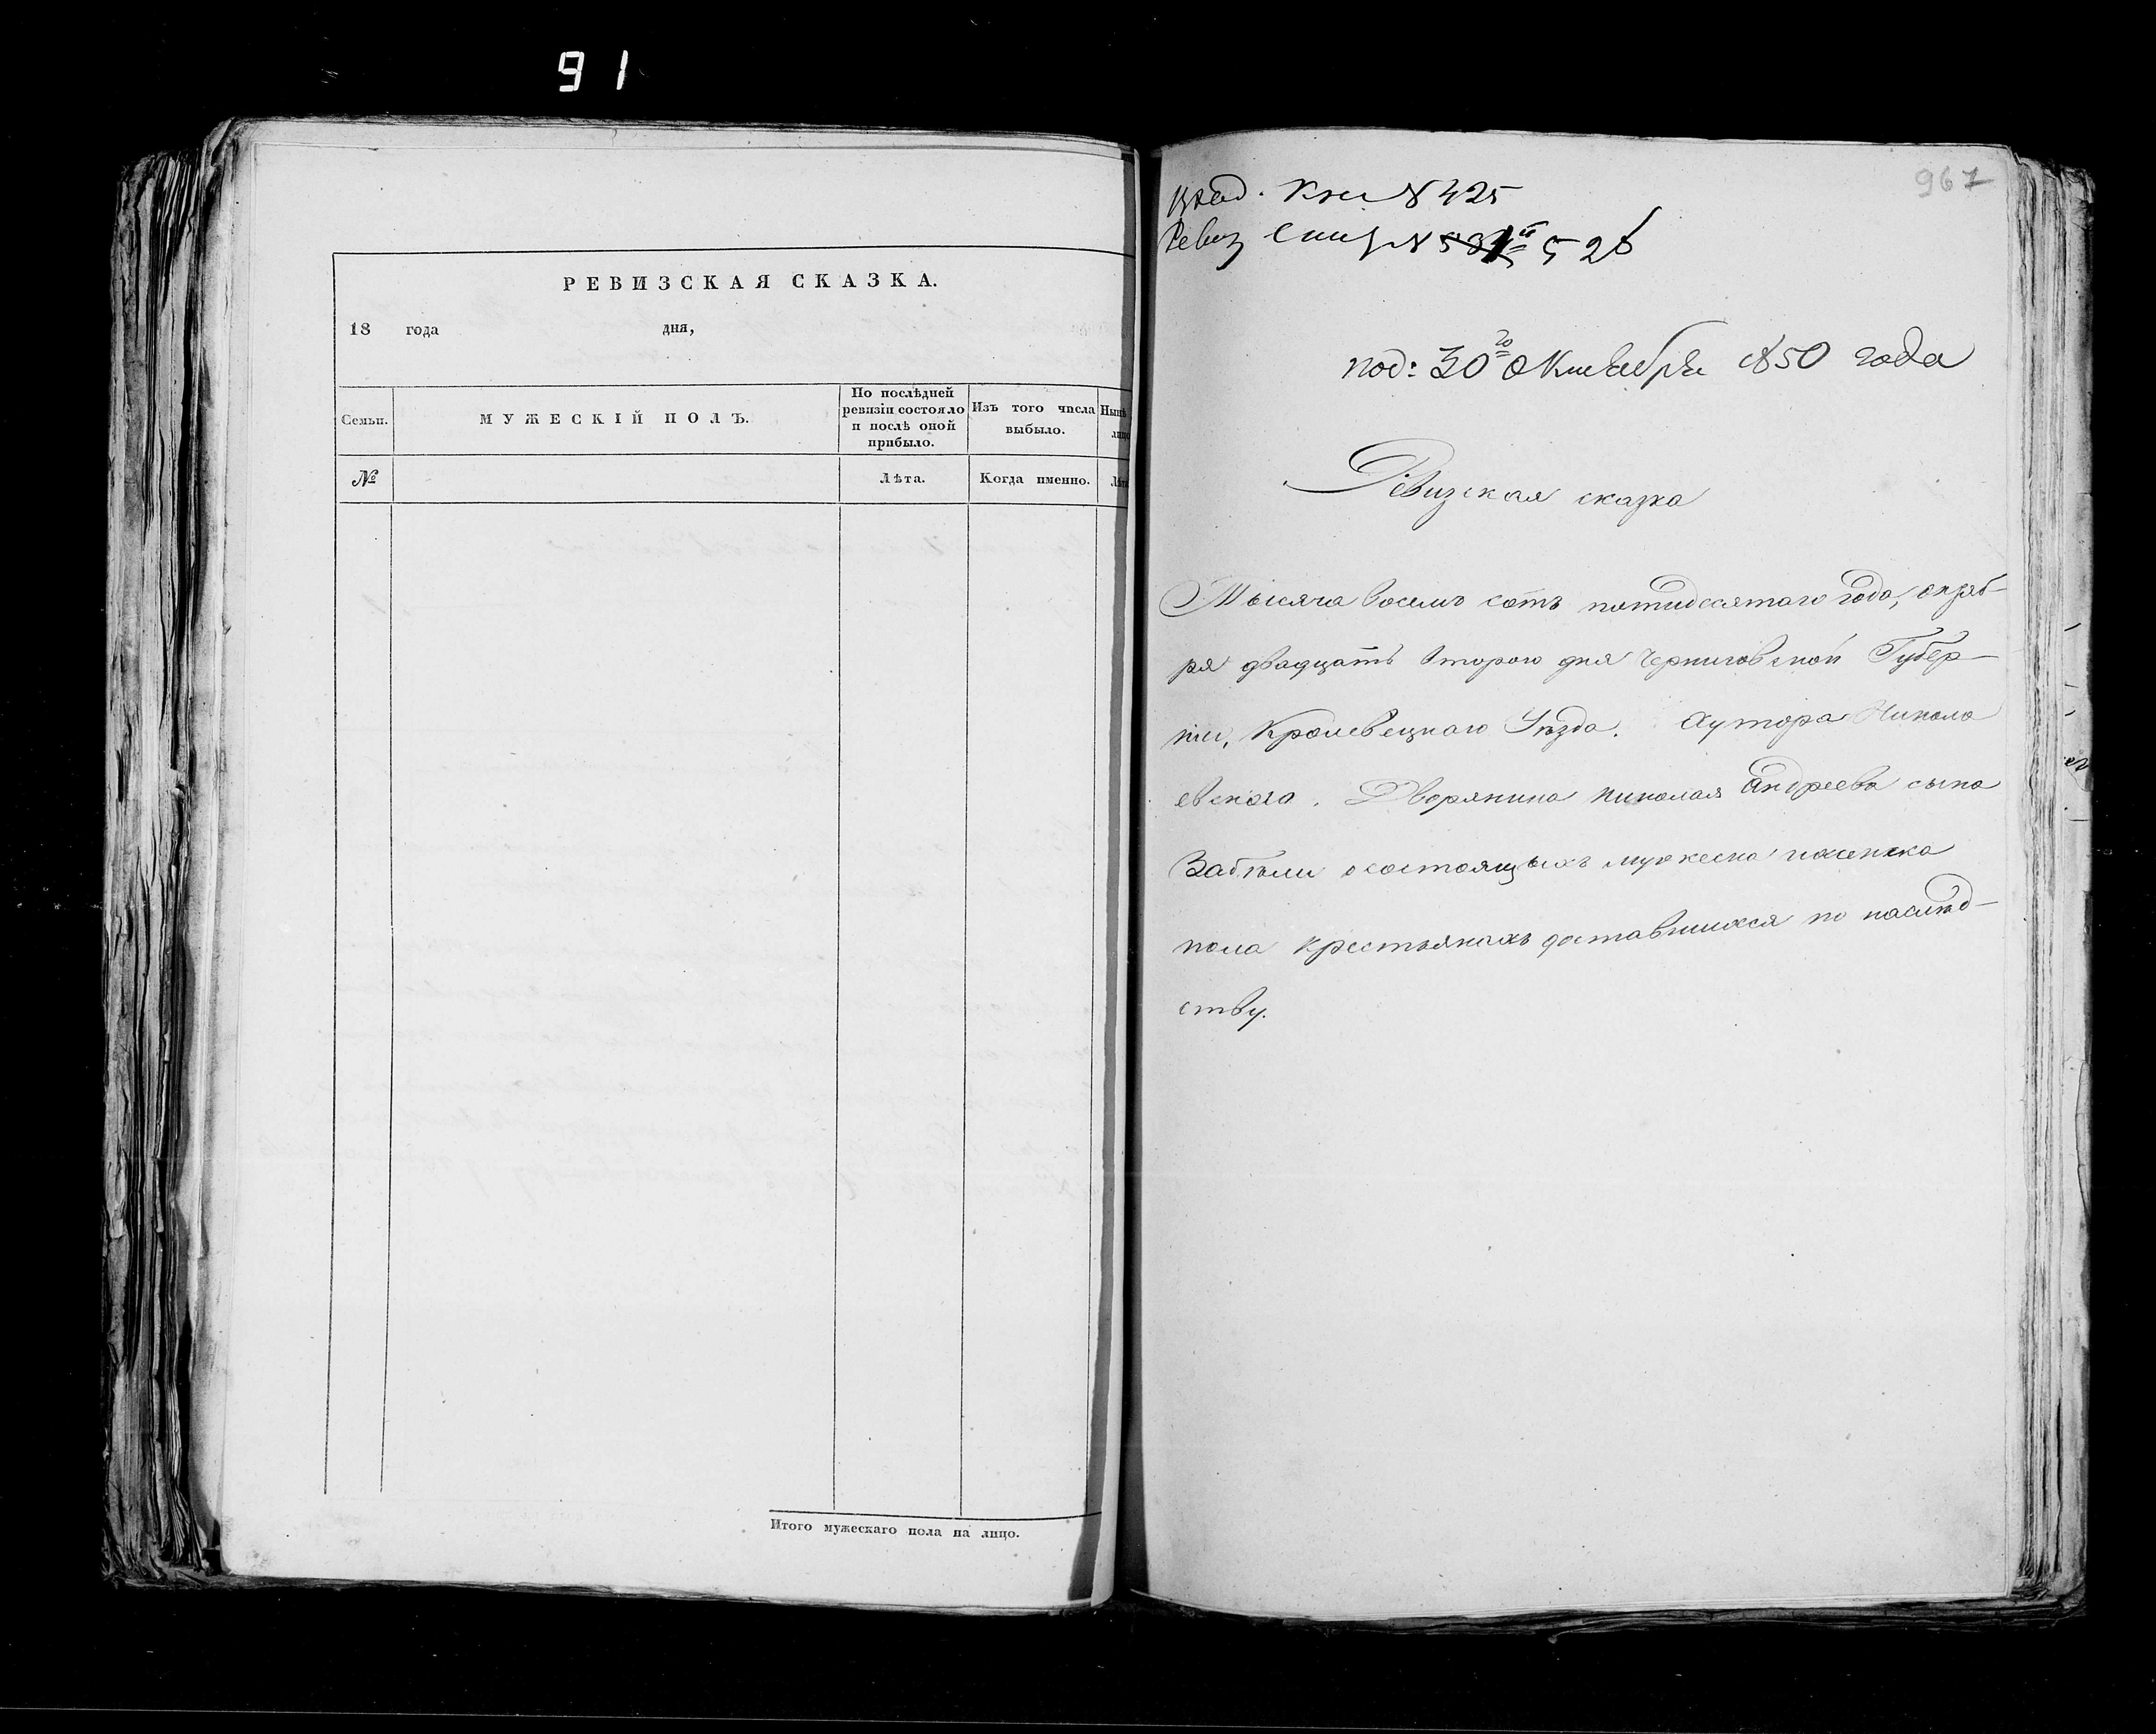 91
РЕВИЗСКАЯ СКАЗКА.
18 года дня,
Семьи.
МУЖЕСКІЙ ПОЛЪ.
По послѣдней
ревизіи состояло
и послѣ оной
прибыло.
Изъ того числа
выбыло.
№
Лѣта.
Когда именно.
Итого мужескаго пола на лицо.
967
Кни № 425
Ревиз № 526
под: 30го Октября 1850 года
Ревизская сказка
Тысяча восемь сотъ пятидесятаго года, октяб-
ря двадцать второго дня Черниговской Губер-
ніи, Кролевецкаго Уѣзда. Хутора Никола
евского. Дворянина Николая Андреева сына
Забѣлы о состоящыхъ мужеска и женска
пола крестьянахъ доставшихся по наслѣд-
ству.